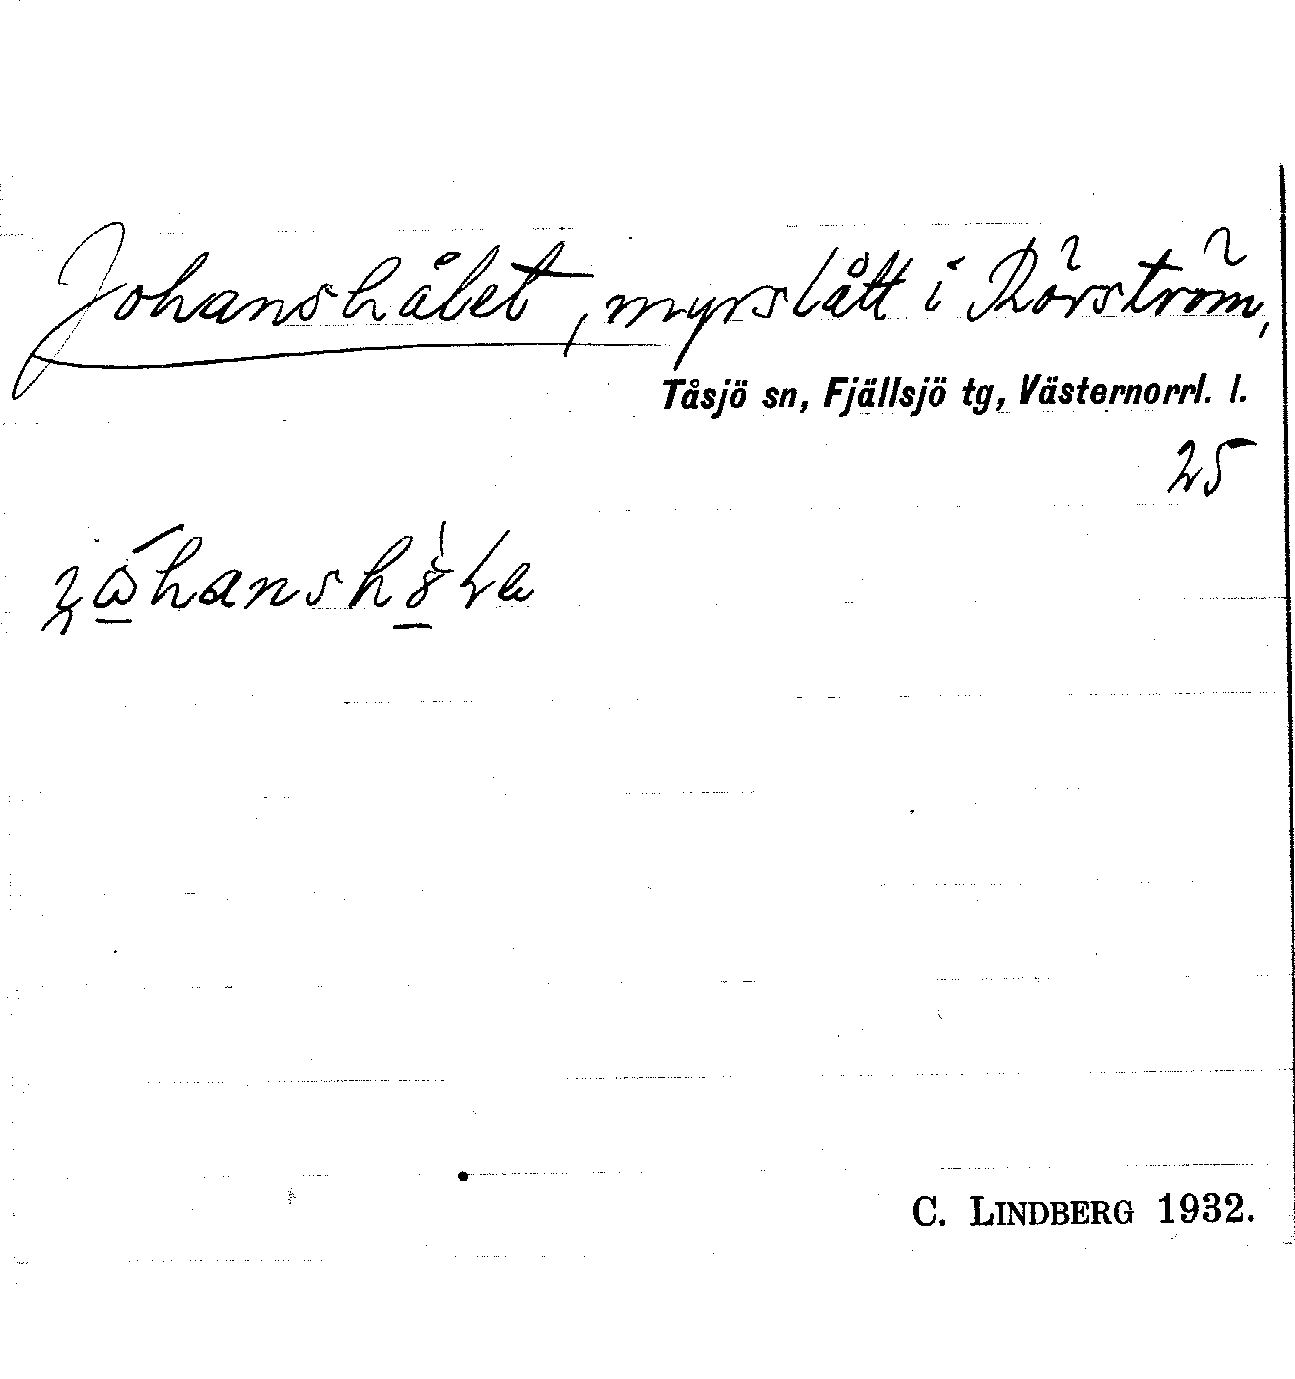 Johanshålet, myrslått i Rörström,
Tåsjö sn, Fjällsjö tg, Västernorrl. l.
25
C. LINDBERG 1932.